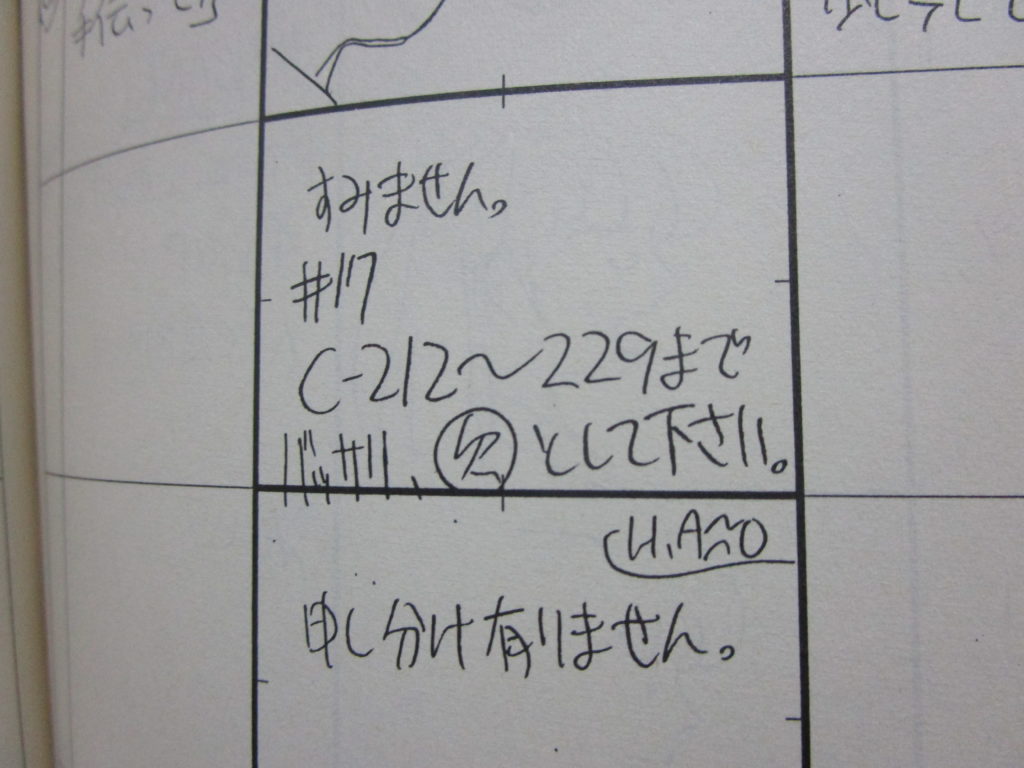 伝って
すみません。
#17
C-212〜229まで
バッサリ、欠として下さい。
H.ANO
申し分け有りません。